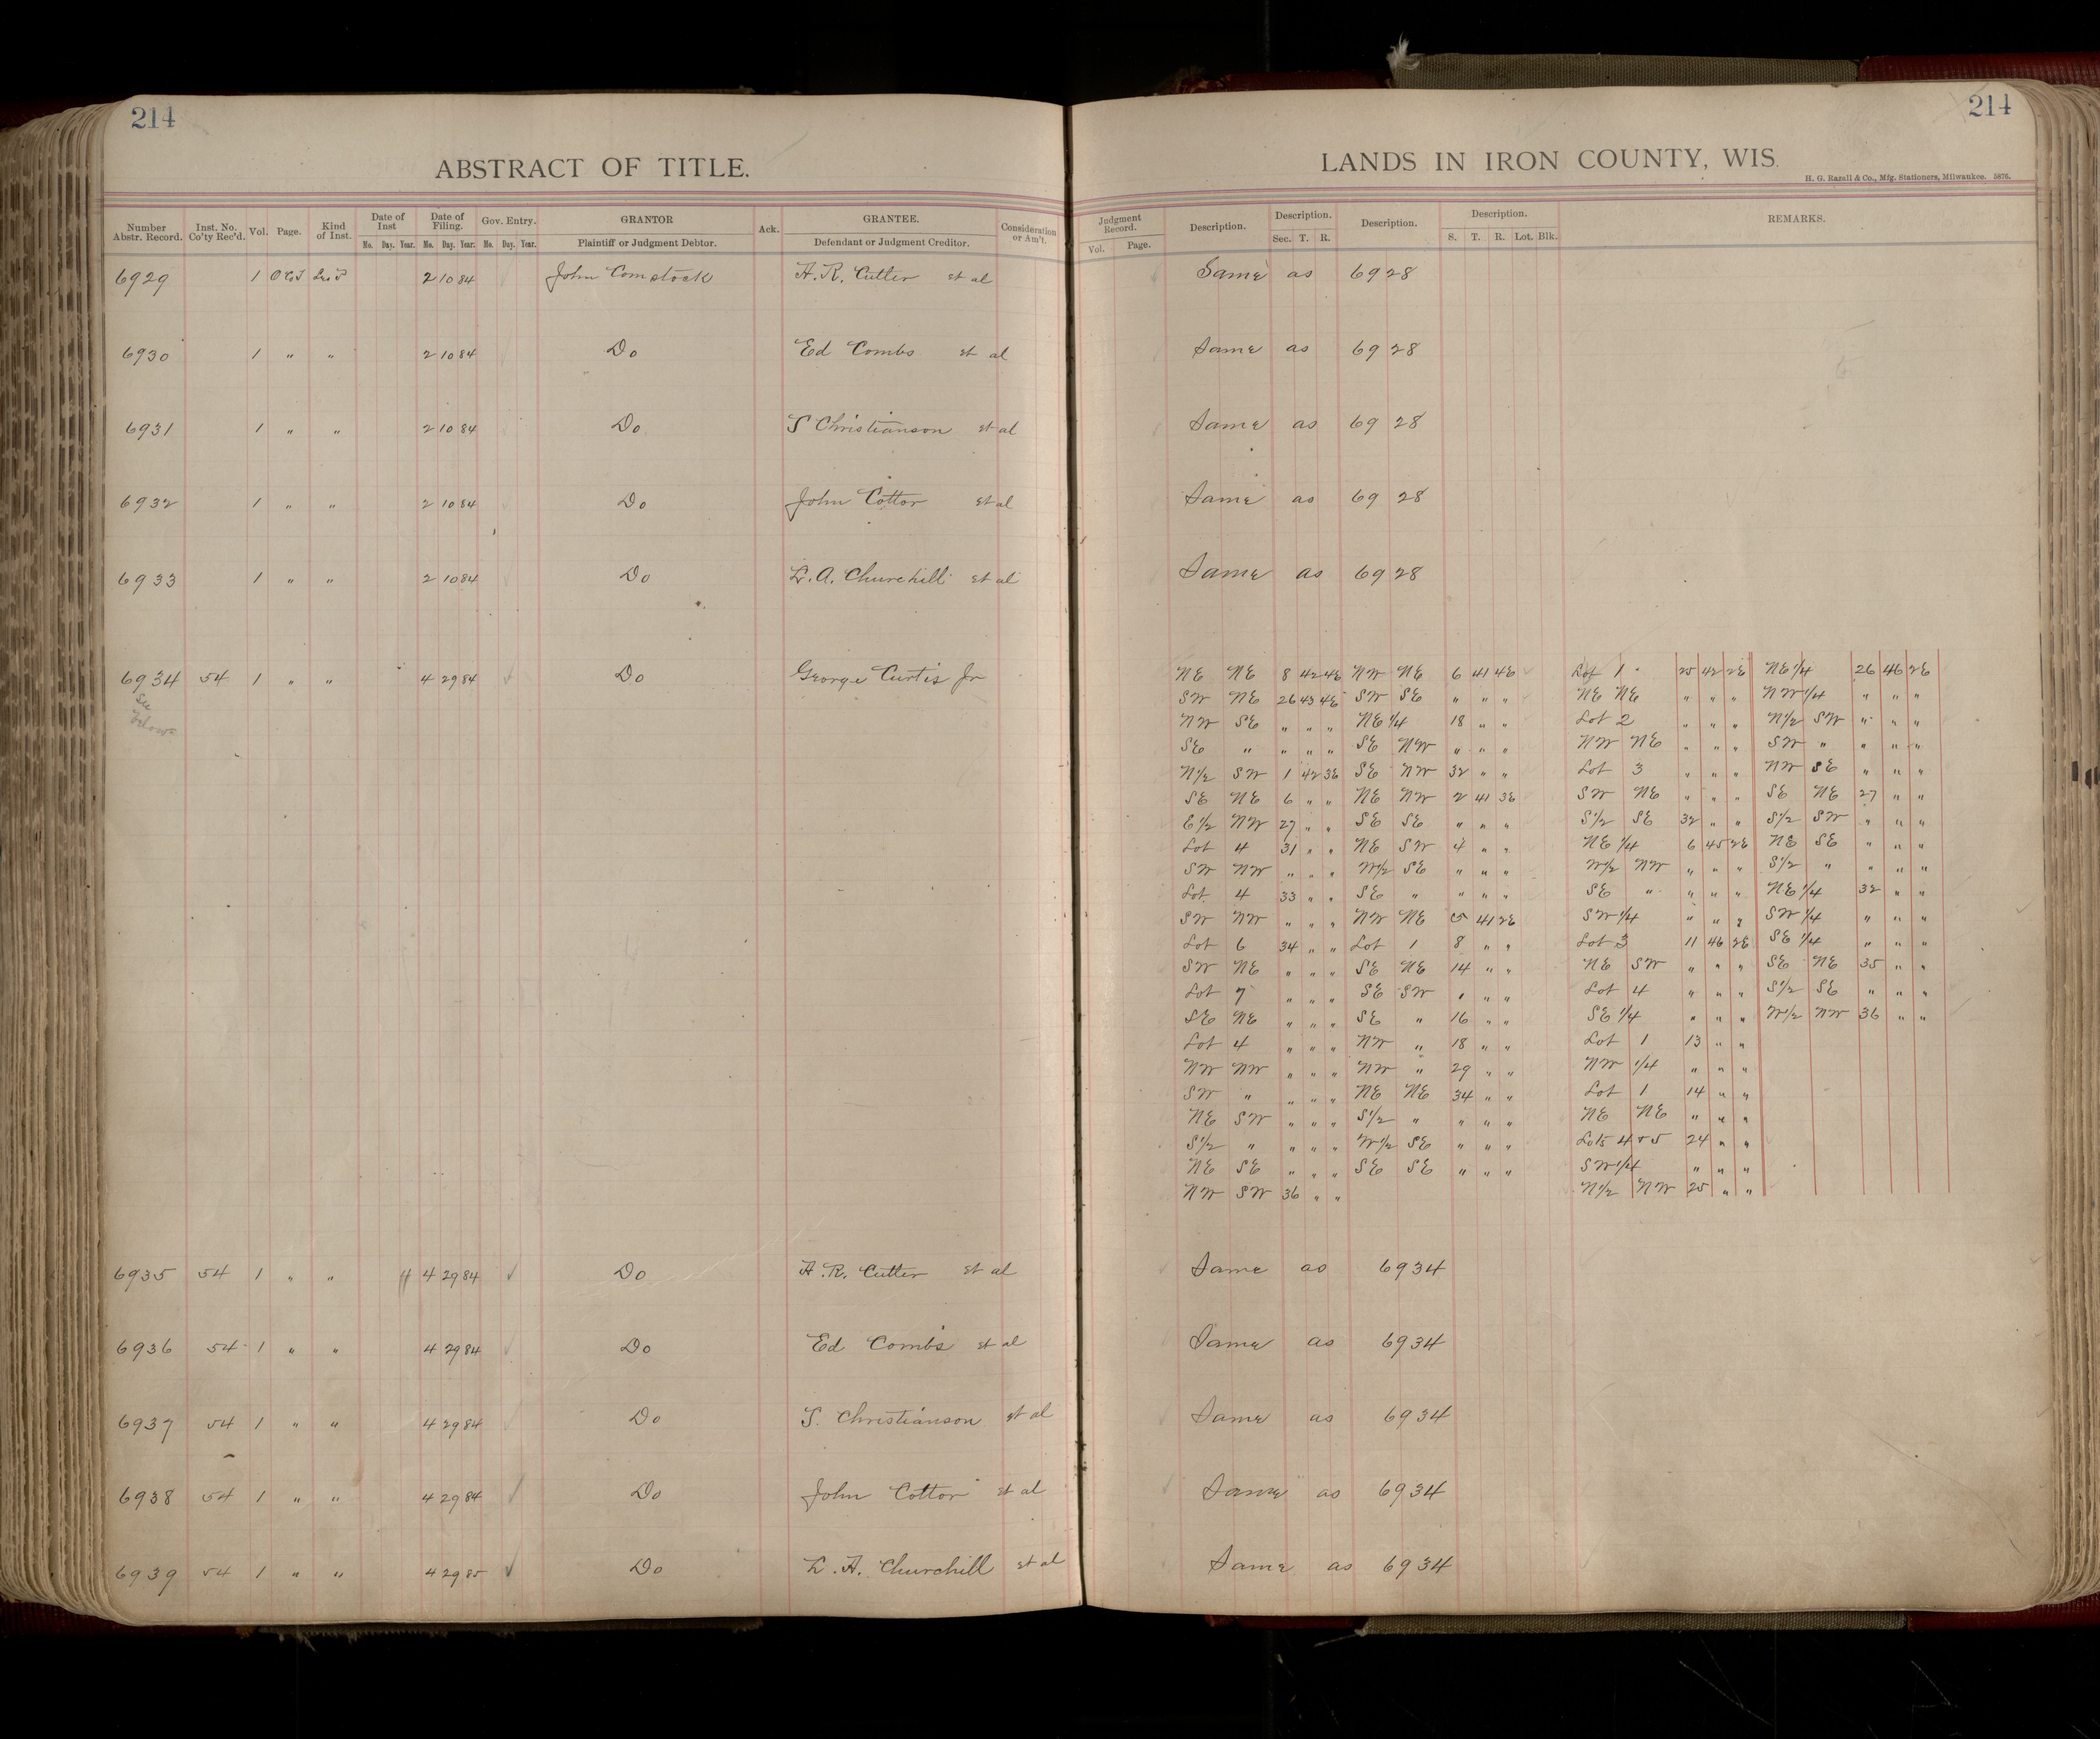 214
214
ABSTRACT OF TITLE.
LANDS IN IRON COUNTY, WIS.
H. G. Razall & Co., Mfg. Stationers, Milwaukee. 5876.
Number Abstr. Record. Inst. No. Co'ty Rec'd. Vol. Page. Kind of Inst. Date of Inst Mo. Day. Year. Date of Filing. Mo. Day. Year. Gov. Entry. Mo. Day. Year. GRANTOR Plaintiff or Judgment Debtor. Ack. GRANTEE. Defendant or Judgment Creditor. Consideration or Am't.
Judgment Record. Vol. Page. Description. Description. Sec. T. R. Description. Description. S. T. R. Lot. Blk. REMARKS.
6929 1 2 10 84 John Comstock A. R. Cutter et al Same as 6928
6930 1 " " 2 10 84 Do Ed Combs et al Same as 6928
6931 1 " " 2 10 84 Do S Christianson et al Same as 6928
6932 1 " " 2 10 84 Do John Cottor et al Same as 6928
6933 1 " " 2 10 84 Do L. A. Churchill et al Same as 6928
6934 54 1 " " 4 29 84 Do George Curtis Jr
See below
NE NE 8 42 4E NW NE 6 41 4E Lot 1 25 42 2E NE 1/4 26 46 2E
SW NE 26 43 4E SW SE " " " NE NE " " " NW 1/4 " " "
NW SE " " " NE 1/4 18 " " Lot 2 " " " N1/2 SW " " "
SE " " " " SE NW " " " NW NE " " " SW " " " "
N1/2 SW 1 42 3E SE NW 32 " " Lot 3 " " " NW SE " " "
SE NE 6 " " NE NW 2 41 3E SW NE " " " SE NE 27 " "
E1/2 NW 27 " " SE SE " " " S1/2 SE 32 " " S1/2 SW " " "
Lot 4 31 " " NE SW 4 " " NE 1/4 6 45 2E NE SE " " "
SW NW " " " W1/2 SE " " " W1/2 NW " " " S1/2 " " " "
Lot 4 33 " " SE " " " " SE " " " " NE 1/4 32 " "
SW NW " " " NW NE 5 41 2E SW 1/4 " " " SW 1/4 " " "
Lot 6 34 " " Lot 1 8 " " Lot 3 11 46 2E SE 1/4 " " "
SW NE " " " SE NE 14 " " NE SW " " " SE NE 35 " "
Lot 7 " " " SE SW " " " Lot 4 " " " S1/2 SE " " "
SE NE " " " SE " 16 " " SE 1/4 " " " W1/2 NW 36 " "
Lot 4 " " " NW " 18 " " Lot 1 13 " "
NW NW " " " NW " 29 " " NW 1/4 " " "
SW " " " " NE NE 34 " " Lot 1 14 " "
NE SW " " " S1/2 " " " " NE NE " " "
S1/2 " " " " W1/2 SE " " " Lots 4 & 5 24 " "
NE SE " " " SE SE " " " SW 1/4 " " "
NW SW 36 " " N1/2 NW 25 " "
6935 54 1 " " 4 29 84 Do A. R. Cutter et al Same as 6934
6936 54 1 " " 4 29 84 Do Ed Combs et al Same as 6934
6937 54 1 " " 4 29 84 Do S. Christianson et al Same as 6934
6938 54 1 " " 4 29 84 Do John Cottor et al Same as 6934
6939 54 1 " " 4 29 85 Do L. A. Churchill et al Same as 6934